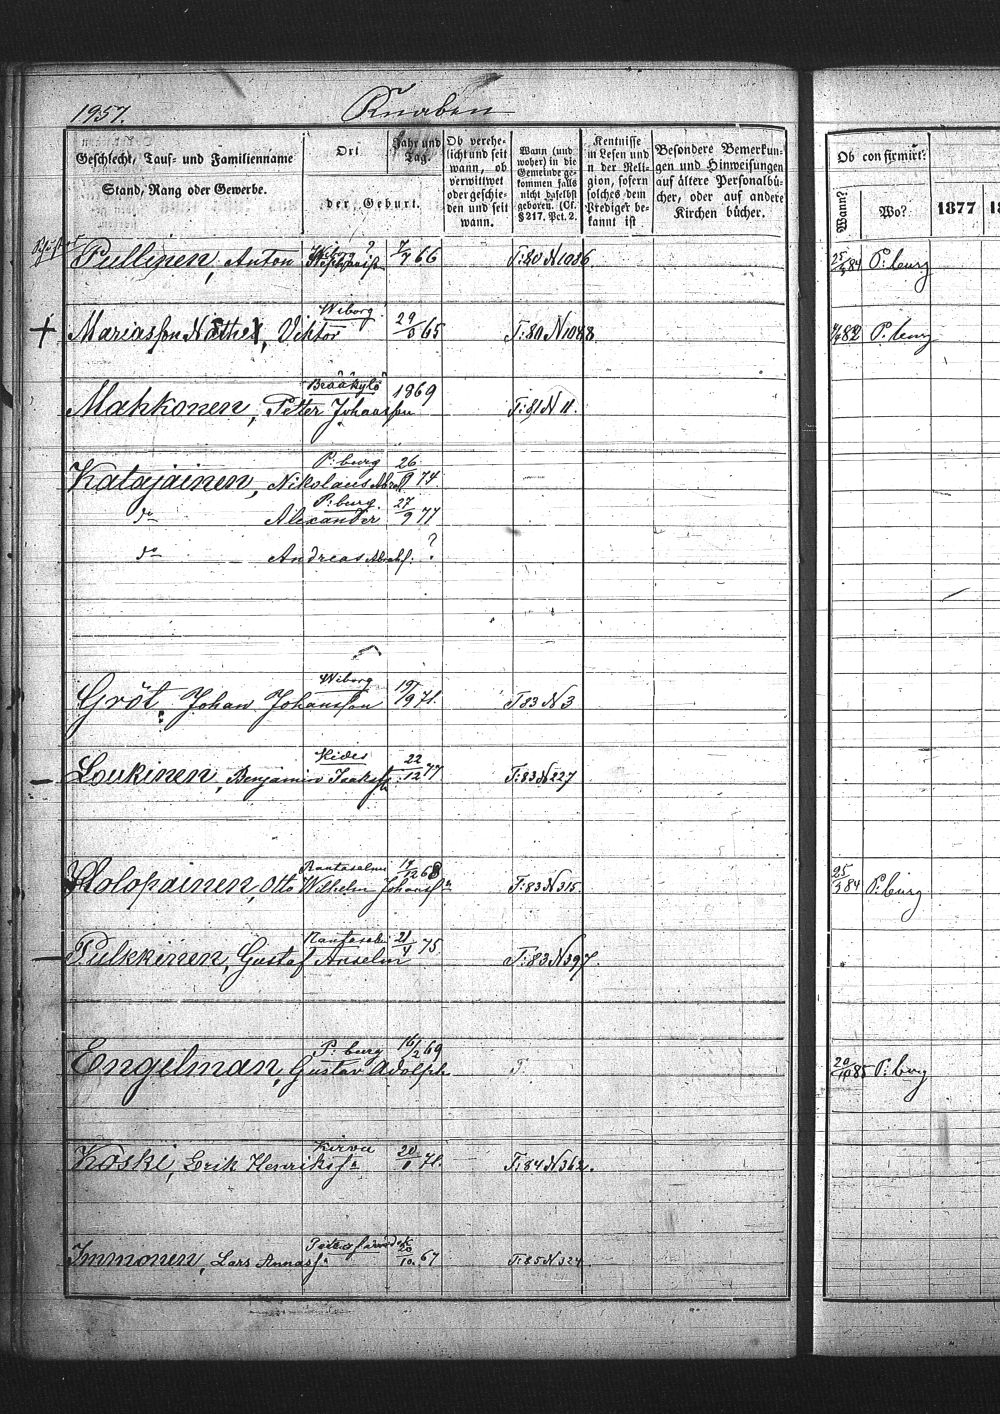 1957. Knaben
Geschlecht, Tauf- und Familienname
Stand, Rang oder Gewerbe.
Ort
Jahr und Tag.
der Geburt.
Ob verehe-
licht und seit
wann, ob
verwittwet
oder geschie-
den und seit
wann.
Wann (und
woher) in die
Gemeinde ge-
kommen falls
nicht daselbst
geboren. (Cf.
§ 217. Pct. 2.
Kentnisse
in Lesen und
n der Reli-
gion, sofern
solches dem
Prediger be-
kannt ist
Besondere Bemerkun-
gen und Hinweisungen
auf ältere Personalbü-
cher, oder auf andere
Kirchen bücher.
Ob confirmirt?
Wann?
Wo?
1877
Pullinen, Anton 7/7 66 T:80 N1086 25/3 84 P:burg
Wiborg
+ Mariasson Näthel, Viktor 29/5 65 T:80 N1088 82 P:burg
Bräkylä
Mahkonen, Petter Johansson 1869 T:81 N 11.
P:burg
Katajainen, Nikolaus Abrah 26/9 74.
P:burg
do Alexander 27/9 77
do Andreas Abrahs. ?
Wiborg
Gröt, Johan Johansson 19/9 71. T 83 N 3
Kides
— Loukinen, Benjamin Isaksson 22/12 77 T:83 N227
Rantasalmi
Holopainen, Otto Wilhelm Johanss:n 14/12 68 T:83 N315. 25/3 84 P:burg
Rantasalmi
— Pulkkinen, Gustaf Anselm 21/4 75. T:83 N397.
P:burg
Engelman, Gustav Adolph 16/2 69 T. 20/10 85 P:burg
Kirvu
Koski, Erik Henrikss:n 20/1 71. T:84 N362.
Immonen, Lars Annass: 20/10. 67 T:85 N324